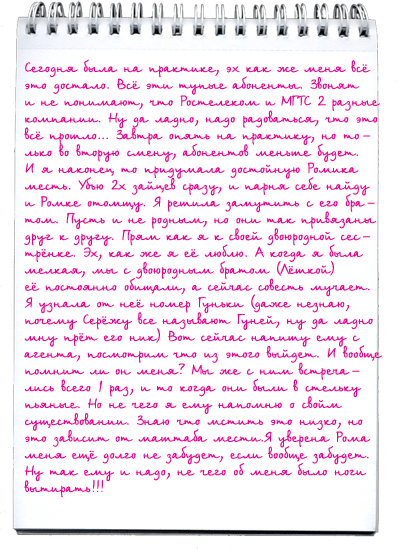 Сегодня была на практике, эх как же меня всё
это достало. Всё эти тупые абоненты. Звонят
и не понимают, что Ростелеком и МГТС 2 разные
компании. Ну да ладно, надо радоваться, что это
всё прошло... Завтра опять на практику, но то-
лько во вторую смену, абонентов меньше будет.
И я наконец то придумала достойную Ромика
месть. Убью 2х зайцев сразу, и парня себе найду
и Ромке отомщу. Я решила замутить с его бра-
том. Пусть и не родным, но они так привязаны
друг к другу. Прям как я к своей двоюродной сес-
трёнке. Эх, как же я её люблю. А когда я была
мелкая, мы с двоюродным братом (Лёшкой)
её постоянно обищали, а сейчас совесть мучает.
Я узнала от неё номер Гуньки (даже незнаю,
почему Серёжу все называют Гуней, ну да ладно
мну прёт его ник) Вот сейчас напишу ему с
агента, посмотрим что из этого выйдет. И вообще
помнит ли он меня? Мы же с ним встреча-
лись всего 1 раз, и то когда они были в стельку
пьяные. Но не чего я ему напомню о своём
существовании. Знаю что мстить это низко, но
это зависит от маштаба мести.Я уверена Рома
меня ещё долго не забудет, если вообще забудет.
Ну так ему и надо, не чего об меня было ноги
вытирать!!!